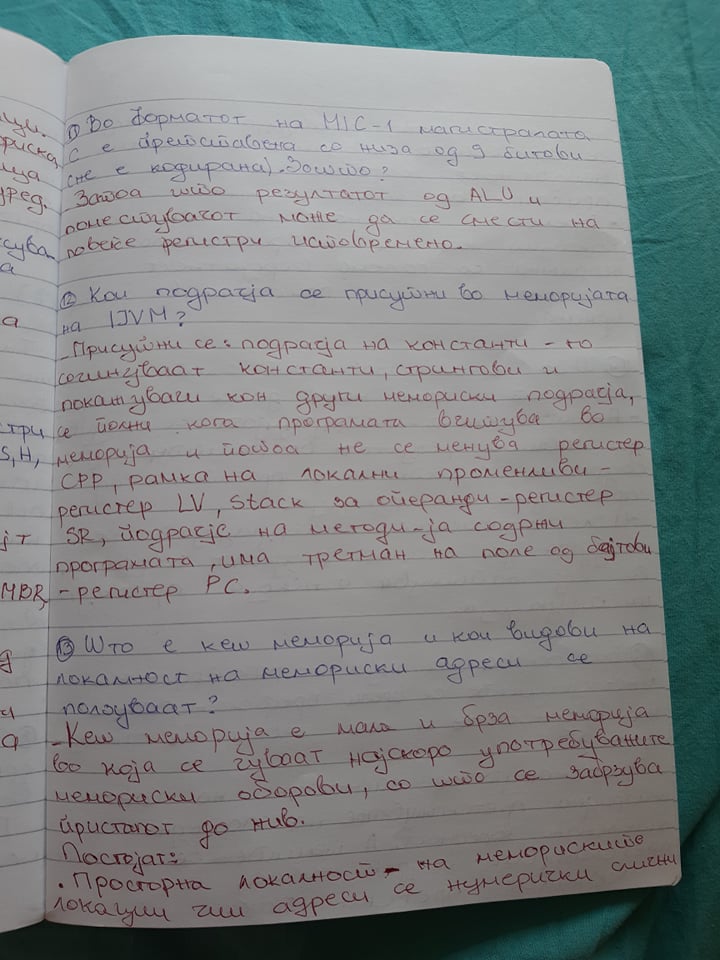 ци.
ориска
ица
уред.
сува-
а
а
стри
S,H,
јт
MBR
а
⑪ Во форматот на MIC-1 магистралата
C е претставена со низа од 9 битови
(не е кодирана). Зошто?
Затоа што резултатот од ALU и
поместувачот може да се смести на
повеќе регистри истовремено.
⑫ Кои подрачја се присутни во меморијата
на IJVM?
-Присутни се: подрачја на константи - го
сочинуваат константи, стрингови и
покажувачи кон други мемориски подрачја,
се полни кога програмата вчитува во
меморија и потоа не се менува регистер
CPP, рамка на локални променливи-
регистер LV, Stack за операнди-регистер
SR, подрачје на методи-ја содржи
програмата, има третман на поле од бајтови
-регистер PC.
⑬ Што е кеш меморија и кои видови на
локалност на мемориски адреси се
познуваат?
-Кеш меморија е мала и брза меморија
во која се чуваат најскоро употребуваните
мемориски зборови, со што се забрзува
пристапот до нив.
Постојат:
• Просторна локалност - на мемориските
локации чии адреси се нумерички слични